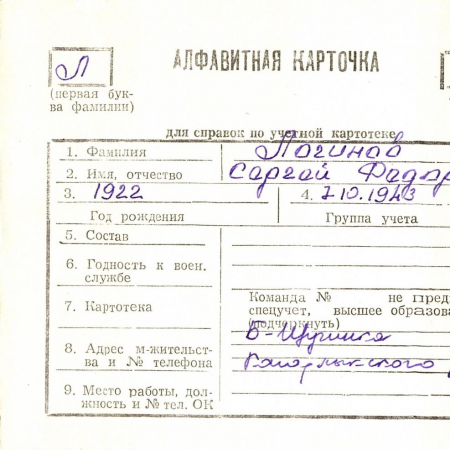 Л
АЛФАВИТНАЯ КАРТОЧКА
(первая бук-
ва фамилии)
для справок по учетной картотеке
1. Фамилия Логинов
2. Имя, отчество Сергей Федор
3. 1922 4. 7 10.1943
Год рождения Группа учета
5. Состав
6. Годность к воен.
службе
7. Картотека Команда № не пред
спецучет, высшее образова
(подчеркнуть)
8. Адрес м-жительст-
ва и № телефона
9. Место работы, дол-
жность и № тел. ОК